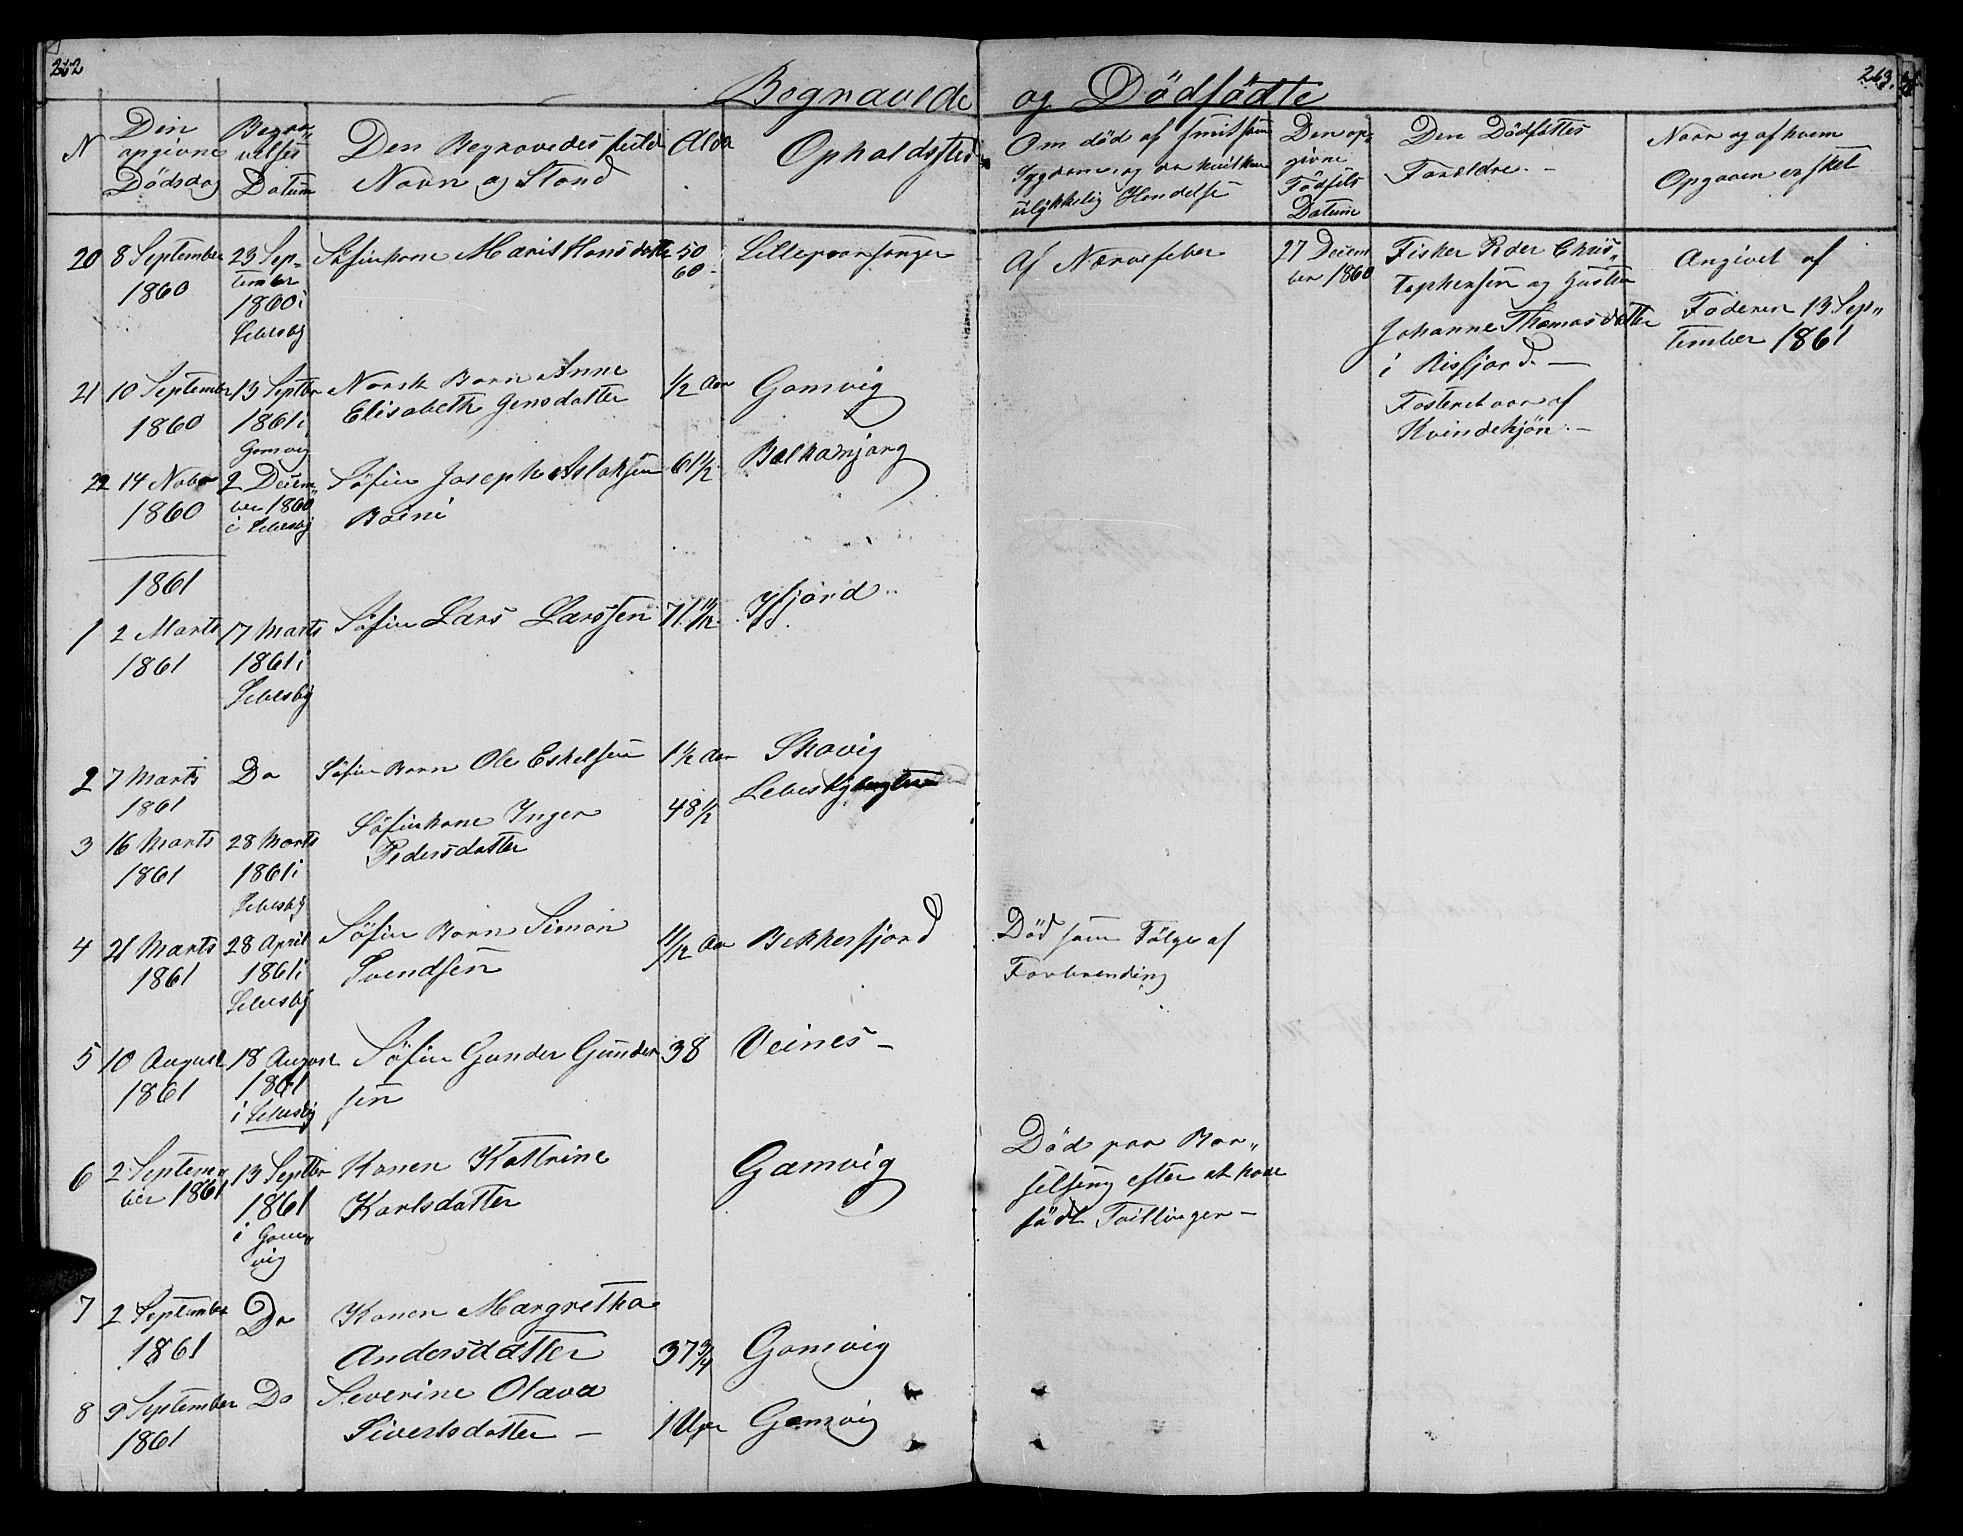 262
263.
Begravede og Dödfödte
N
Den
opgivne
Dödsdag
Begra„
velses
Datum
Den Begravedes fulde
Navn og Stand
Alder
Opholdssted
Om död af smitsom
Sygdom, og ved
ulÿkkelig Hendelse
Den op„
givne
Födsels
Datum
Den Dödföttes
Forældre. –
Naar og af hvem
Opgaven er sket
20 8 September
1860
23 Sep„
tember
1860 i
Lebesby
Söfinkone Marit Hansdatter
50
60
Lilleporsanger
Af Nervefeber
27 Decem
ber 1860
Fisker Peder Chris„
tophersen og Hustru
Johanne Thomasdatter
i Risfjord. –
Fosteret var af
Kvindekjön. –
Angivet af
Faderen 13 Sep„
tember 1861
21 10 September
1860
13 Septbr
1861 i
Gamvig
Norsk Barn Anne
Elisabeth Jensdatter
1/2 Aar
Gamvig
22 14 Nobr
1860
2 Decem„
ber 1860
i Lebesby
Söfin Joseph Aslaksen
Boini
61 1/2
1861
1 2 Marts
1861
17 Marts
1861 i
Lebesby
Söfin Lars Larssen
71 11/12
Ifjord
2 7 Marts
1861
Do
Söfin Barn Ole Eskelsen
1 1/2 Aar
Skavig
3 16 Marts
1861
28 Marts
1861 i
Lebesby
Söfinkone Inger
Pedersdatter
48 1/2
Lebesby
4 21 Marts
1861
28 April
1861 i
Lebesby
Söfin Barn Simon
Svendsen
11/12 Aar
Bekkerfjord
Död som Fölge af
Forbrending
5 10 August
1861
18 August
1861
i Lebesby
Söfin Gunder Gunder
sen
38
Veines –
6 2 Septem„
ber 1861
13 Septbr
1861
i Gam„
vig
Konen Kattrine
Karlsdatter
Gamvig
Död paa Bar„
selseng efter at have
födt Tvillinger –
7 2 September
1861
Do
Konen Margretha
Andersdatter
37 3/4
Gamvig
8 9 September
1861
Do
Severine Olava
Sivertsdatter –
1 Uge
Gamvig